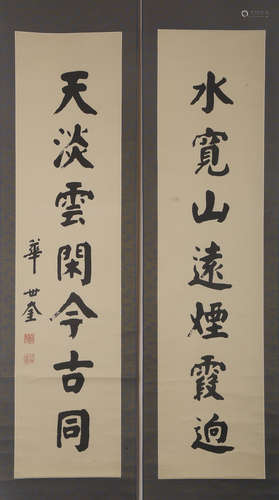 水寬山遠煙霞迥
天淡雲閑今古同
華世奎